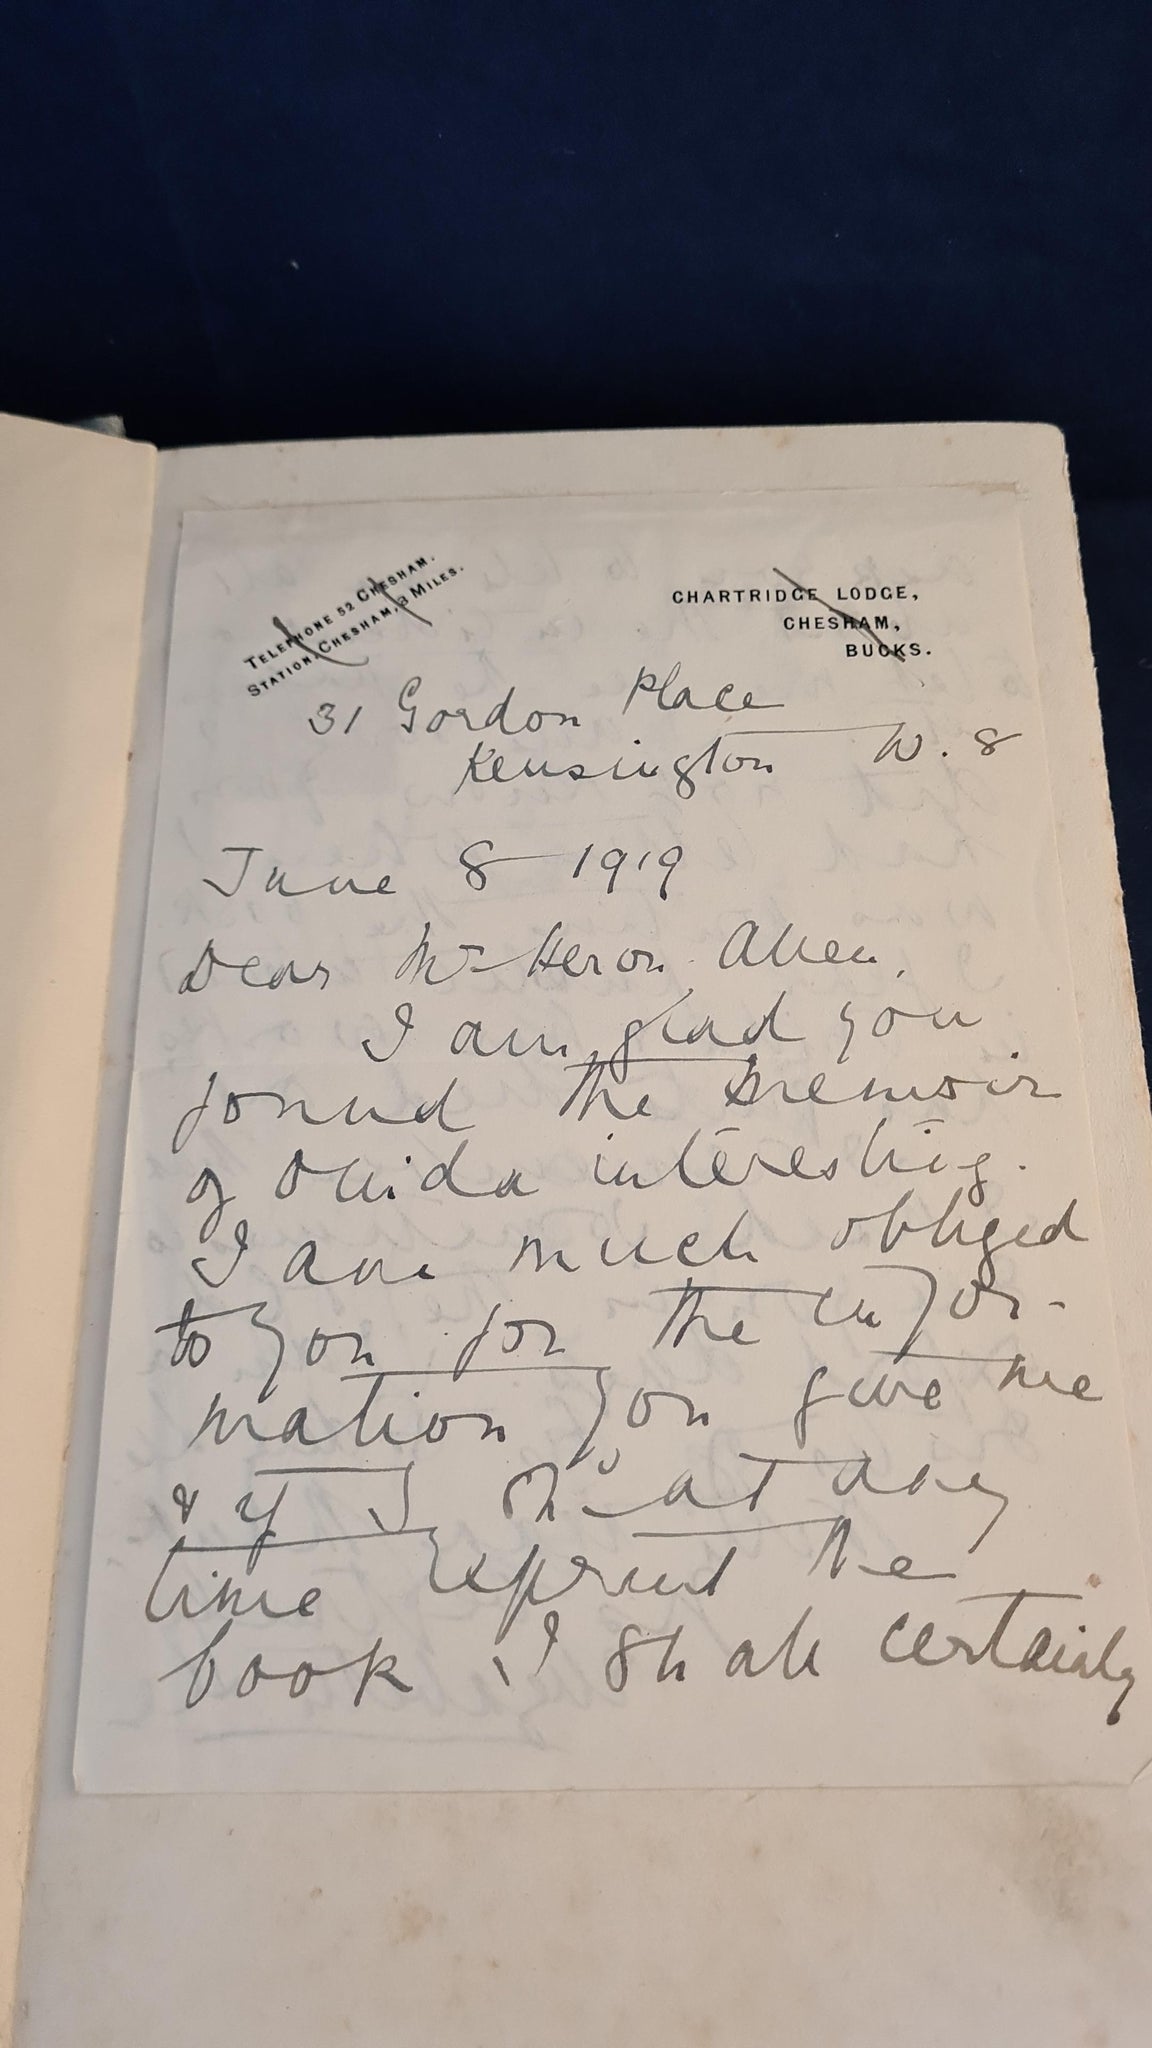 TELEPHONE 52 CHESHAM.
STATION, CHESHAM, 3 MILES.
CHARTRIDGE LODGE,
CHESHAM,
BUCKS.
31 Gordon Place
Kensington W. 8
June 8 1919
Dear Mr Heron Allen,
I am glad you
found the memoir
of Ouida interesting.
I am much obliged
to you for the infor-
mation you give me
& if I shd at any
time reprint the
book, I shall certainly